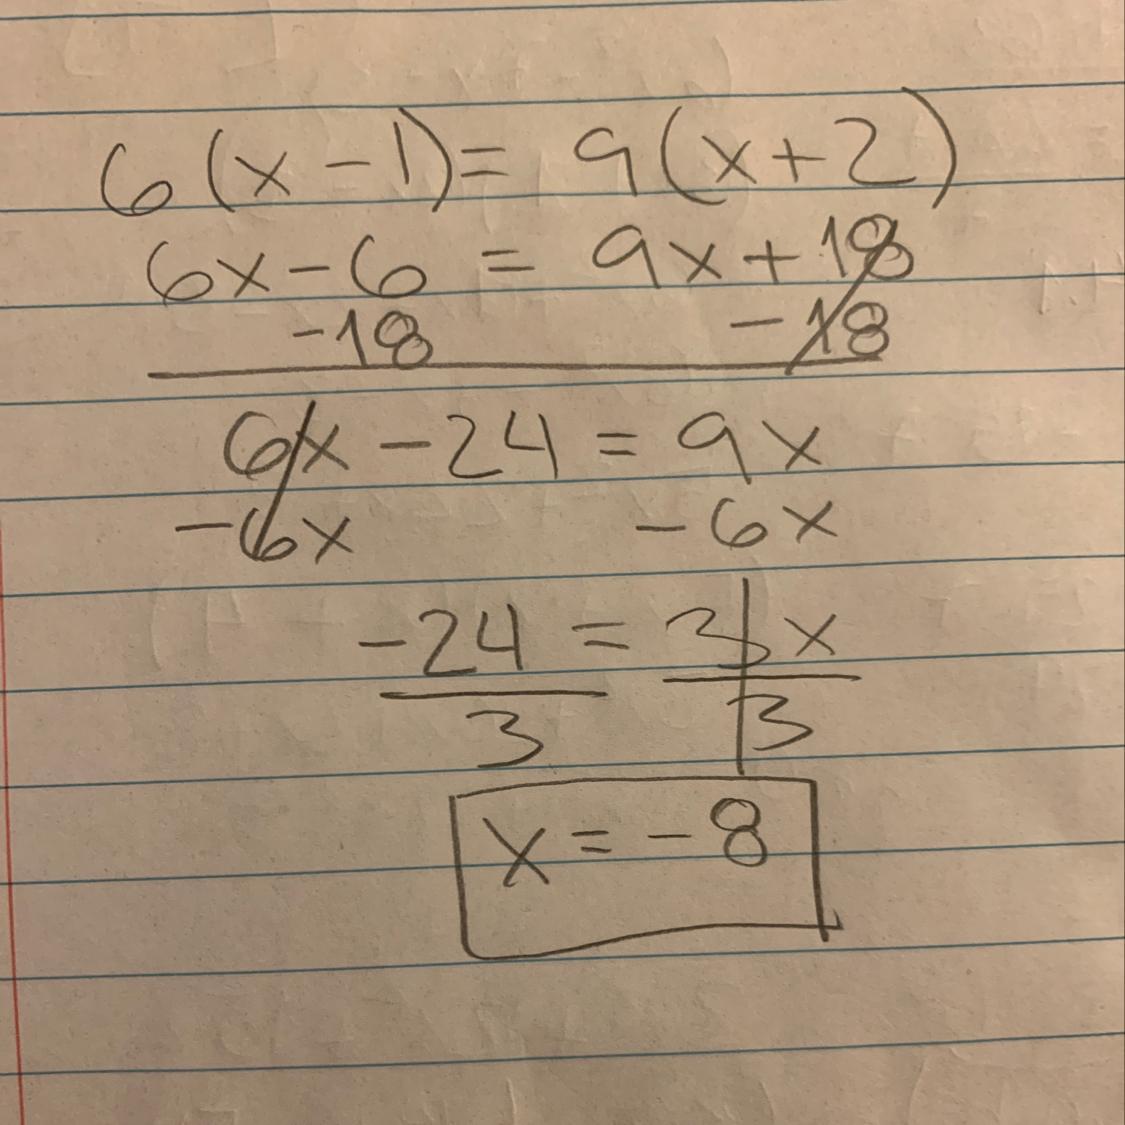 6(x-1)= 9(x+2)
6x-6 = 9x+18
-18 -18
6x-24 = 9x
-6x -6x
-24 = 3x
3 3
x = -8